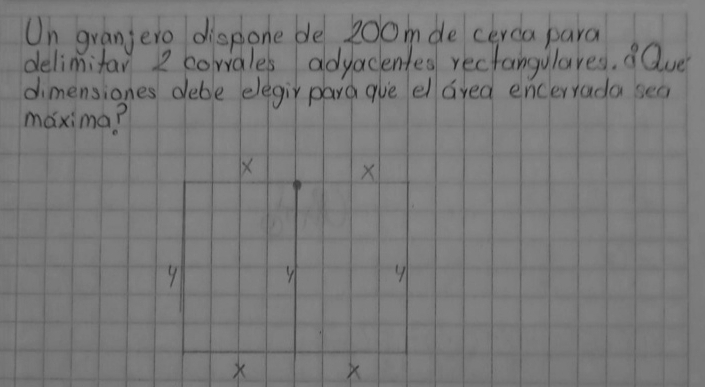 Un granjero dispone de 200m de cerca para
delimitar 2 corrales adyacentes rectangulares. ¿Que
dimensiones debe elegir para que el área encerrada sea
máxima?
x x
y y y
x x